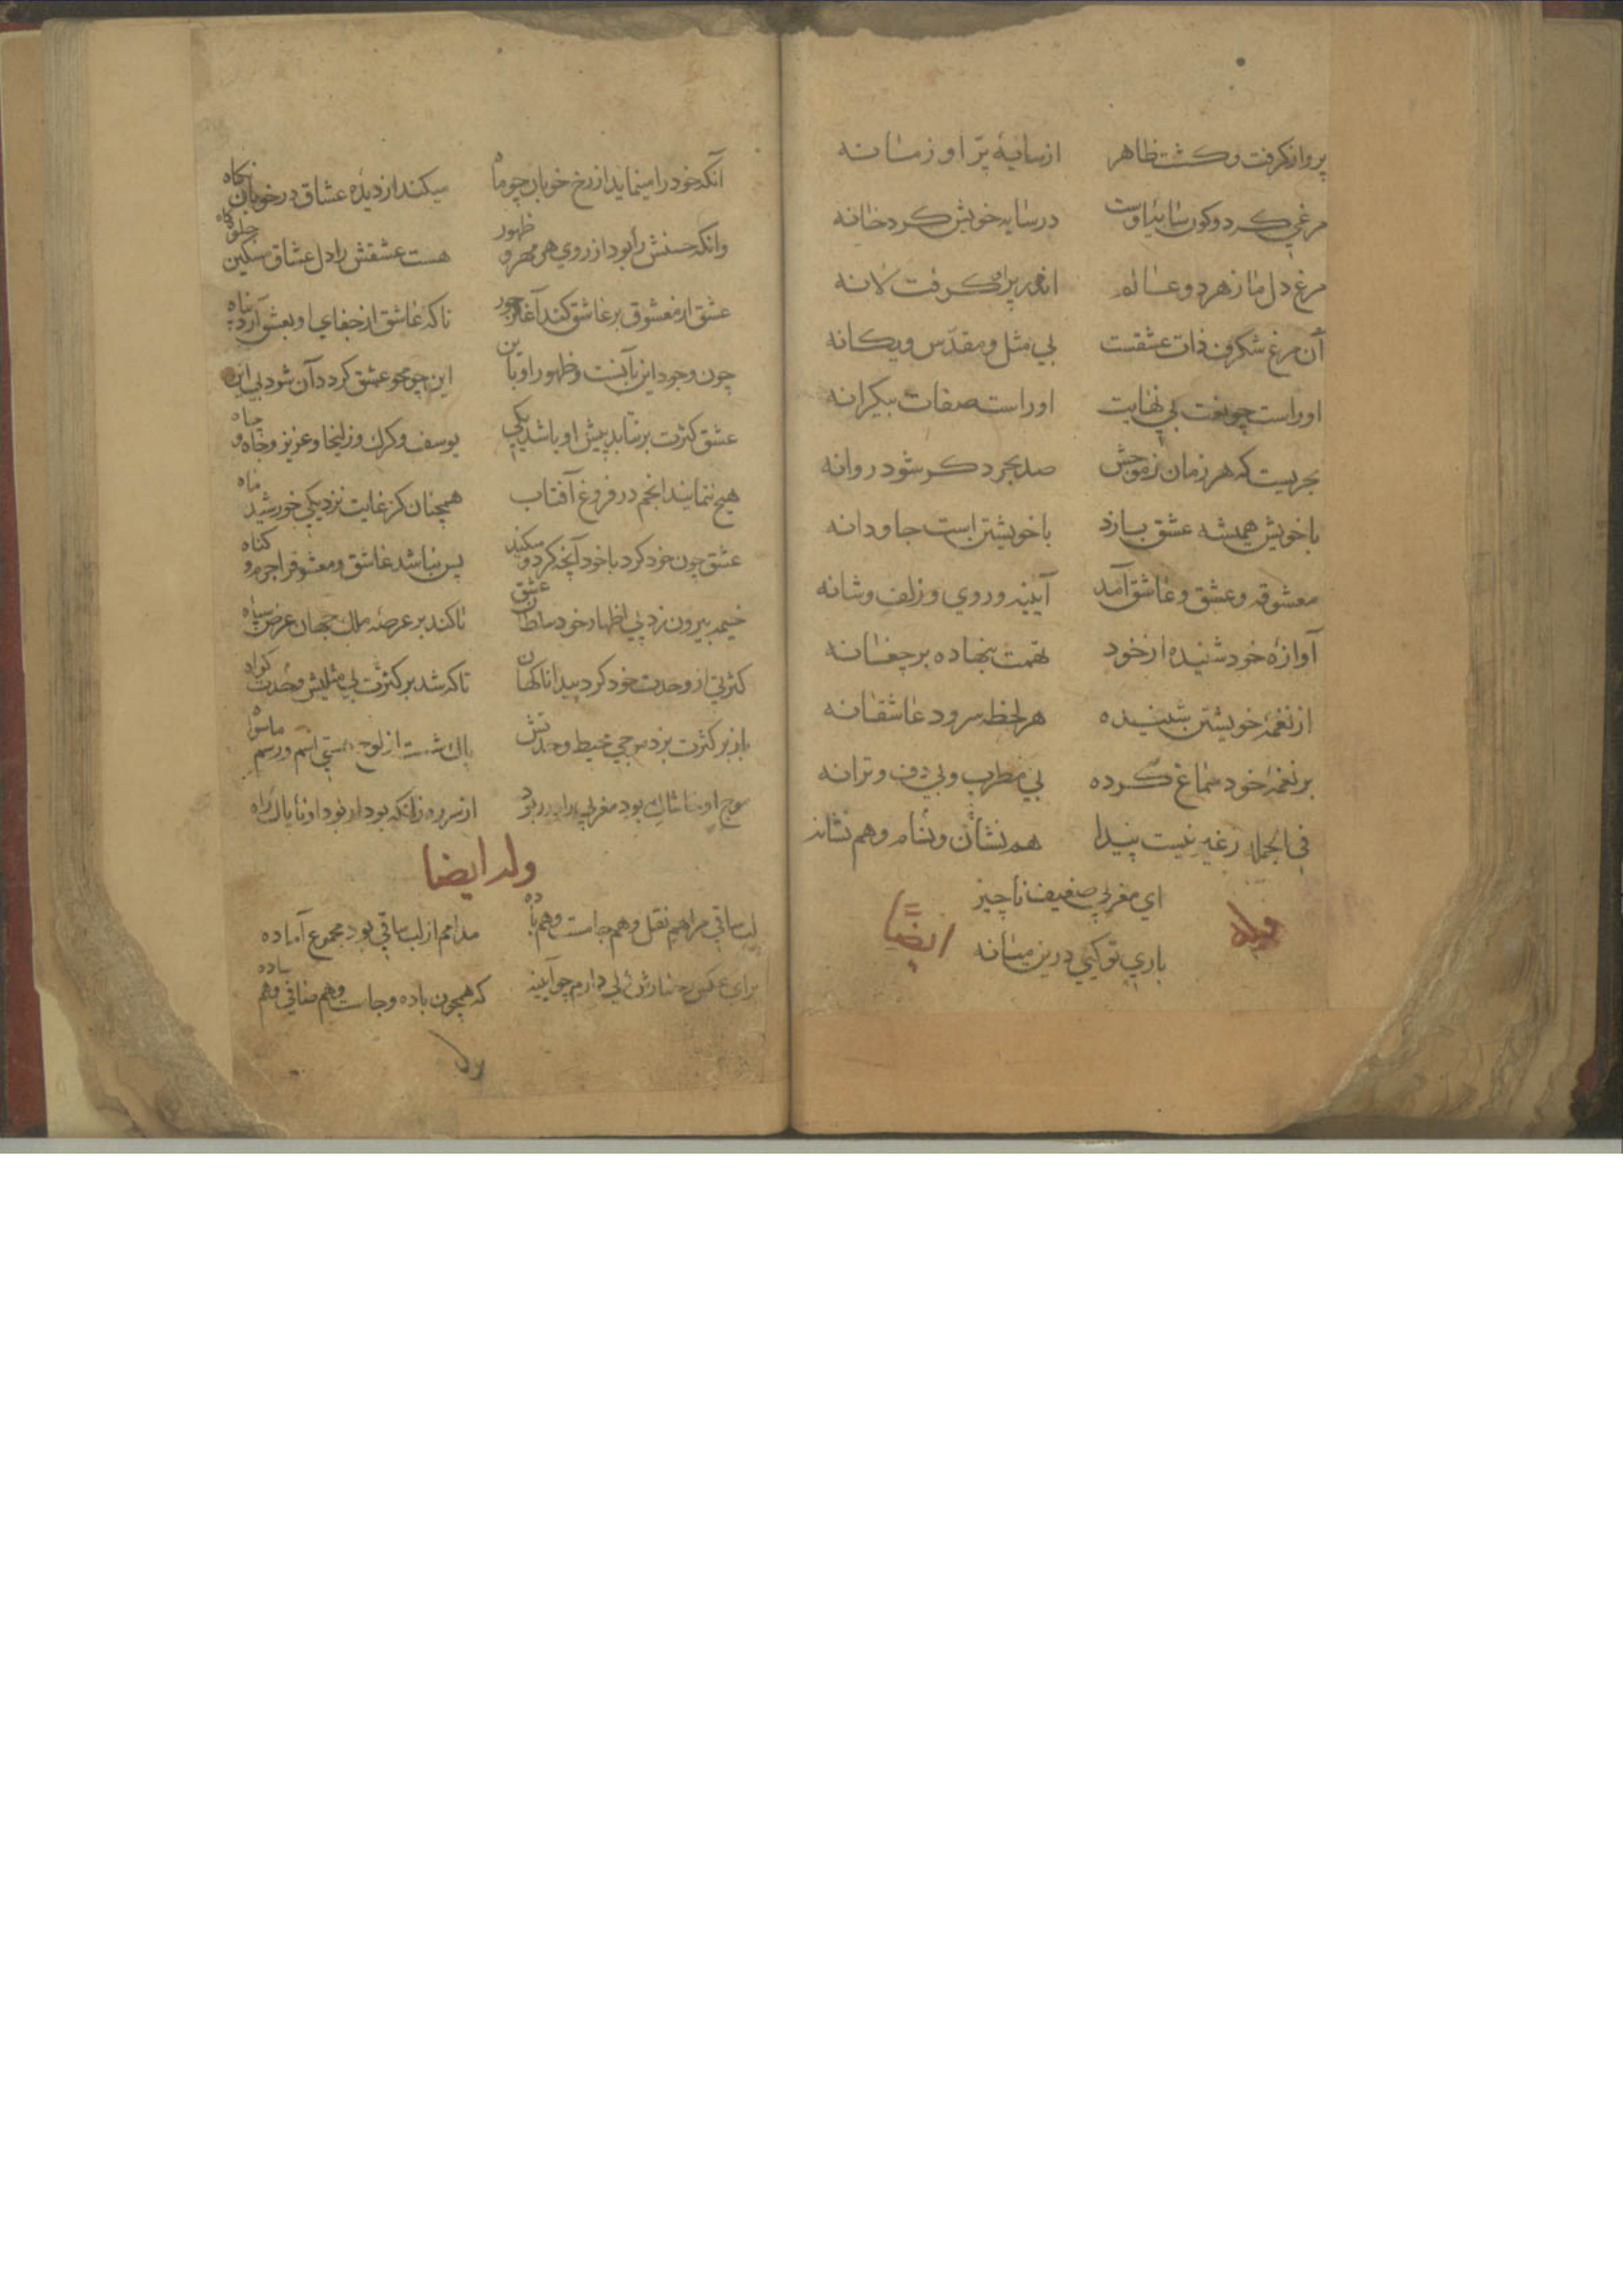 پرواز کرفت و کشت ظاهر ازسایهٔ پرّ او زمانه
مرغی کردوکون سایهٔ اوست درسایه خویش کرد خانه
مرغ دل ما زهر دو عالم اندر پراو کرفت لانه
آن مرغ شکرف ذات عشقست بی مثل ومقدّس ویکانه
اوراست چونعت بی نهایت اوراست صفات بیکرانه
بحریست که هر زمان زموجش صد بحر دکر شود روانه
باخویش همیشه عشق بازد باخویشتن است جاودانه
معشوقه وعشق وعاشق آمد آیینه وروی وزلف وشانه
آوازهٔ خود شنیده ازخود تهمت بنهاده برچغانه
از نغمهٔ خویشتن شنیده هرلحظه سرود عاشقانه
برنغمهٔ خود سماع کرده بی مطرب وبی دف وترانه
فی الجمله زغیر نیست پیدا هم نشان ونام وهم نشانه
ای مغربی ضعیف ناچیز
باری توکیی درین میانه
وله ایضًا
آنکه خودرا مینماید از رخ خوبان چو ماه میکند ازدیده عشاق درخوبان نکاه
وانکه حسنش را بود از روی هر مهرو ظهور هست عشقش را دل عشاق مسکین جلوه کاه
عشق از معشوق برعاشق کند آغاز جور تاکه عاشق از جفای او بعشق آرد پناه
چون وجود این بآنست وظهور او باین این چو محو عشق کردد آن شود بی این
عشق کثرت برنتابد پیش او باشد یکی یوسف وکرک وزلیخا وعزیز وچاه وجاه
هیچ ننمایند انجم در فروغ آفتاب همچنان کز غایت نزدیکی خورشید ماه
عشق چون خود کرد باخود آنچه کرد و میکند پس نباشد عاشق ومعشوق را جرم وکناه
خیمه بیرون زد پی اظهار خود سلطان عشق تاکند برعرصه ملک جهان عرض سپاه
کثرتی از وحدت خود کرد پیدا ناکهان تاکه شد برکثرت بی مثلیش وحدت کواه
باز برکثرت بزد موجی محیط وحدتش پاک شست از لوح هستی اسم ورسم ماسواه
موج او خاشاک بود مغربی را در ربود از سر ره زانکه بود از بود او ناپاک راه
وله ایضا
لب ساقی مرا هم نقل وهم جامست وهم باده مدامم از لب ساقی بود مجموع آماده
برای عکس رخسارش دلی دارم چو آیینه که همچون باده وجامست وهم صافی وهم ساده